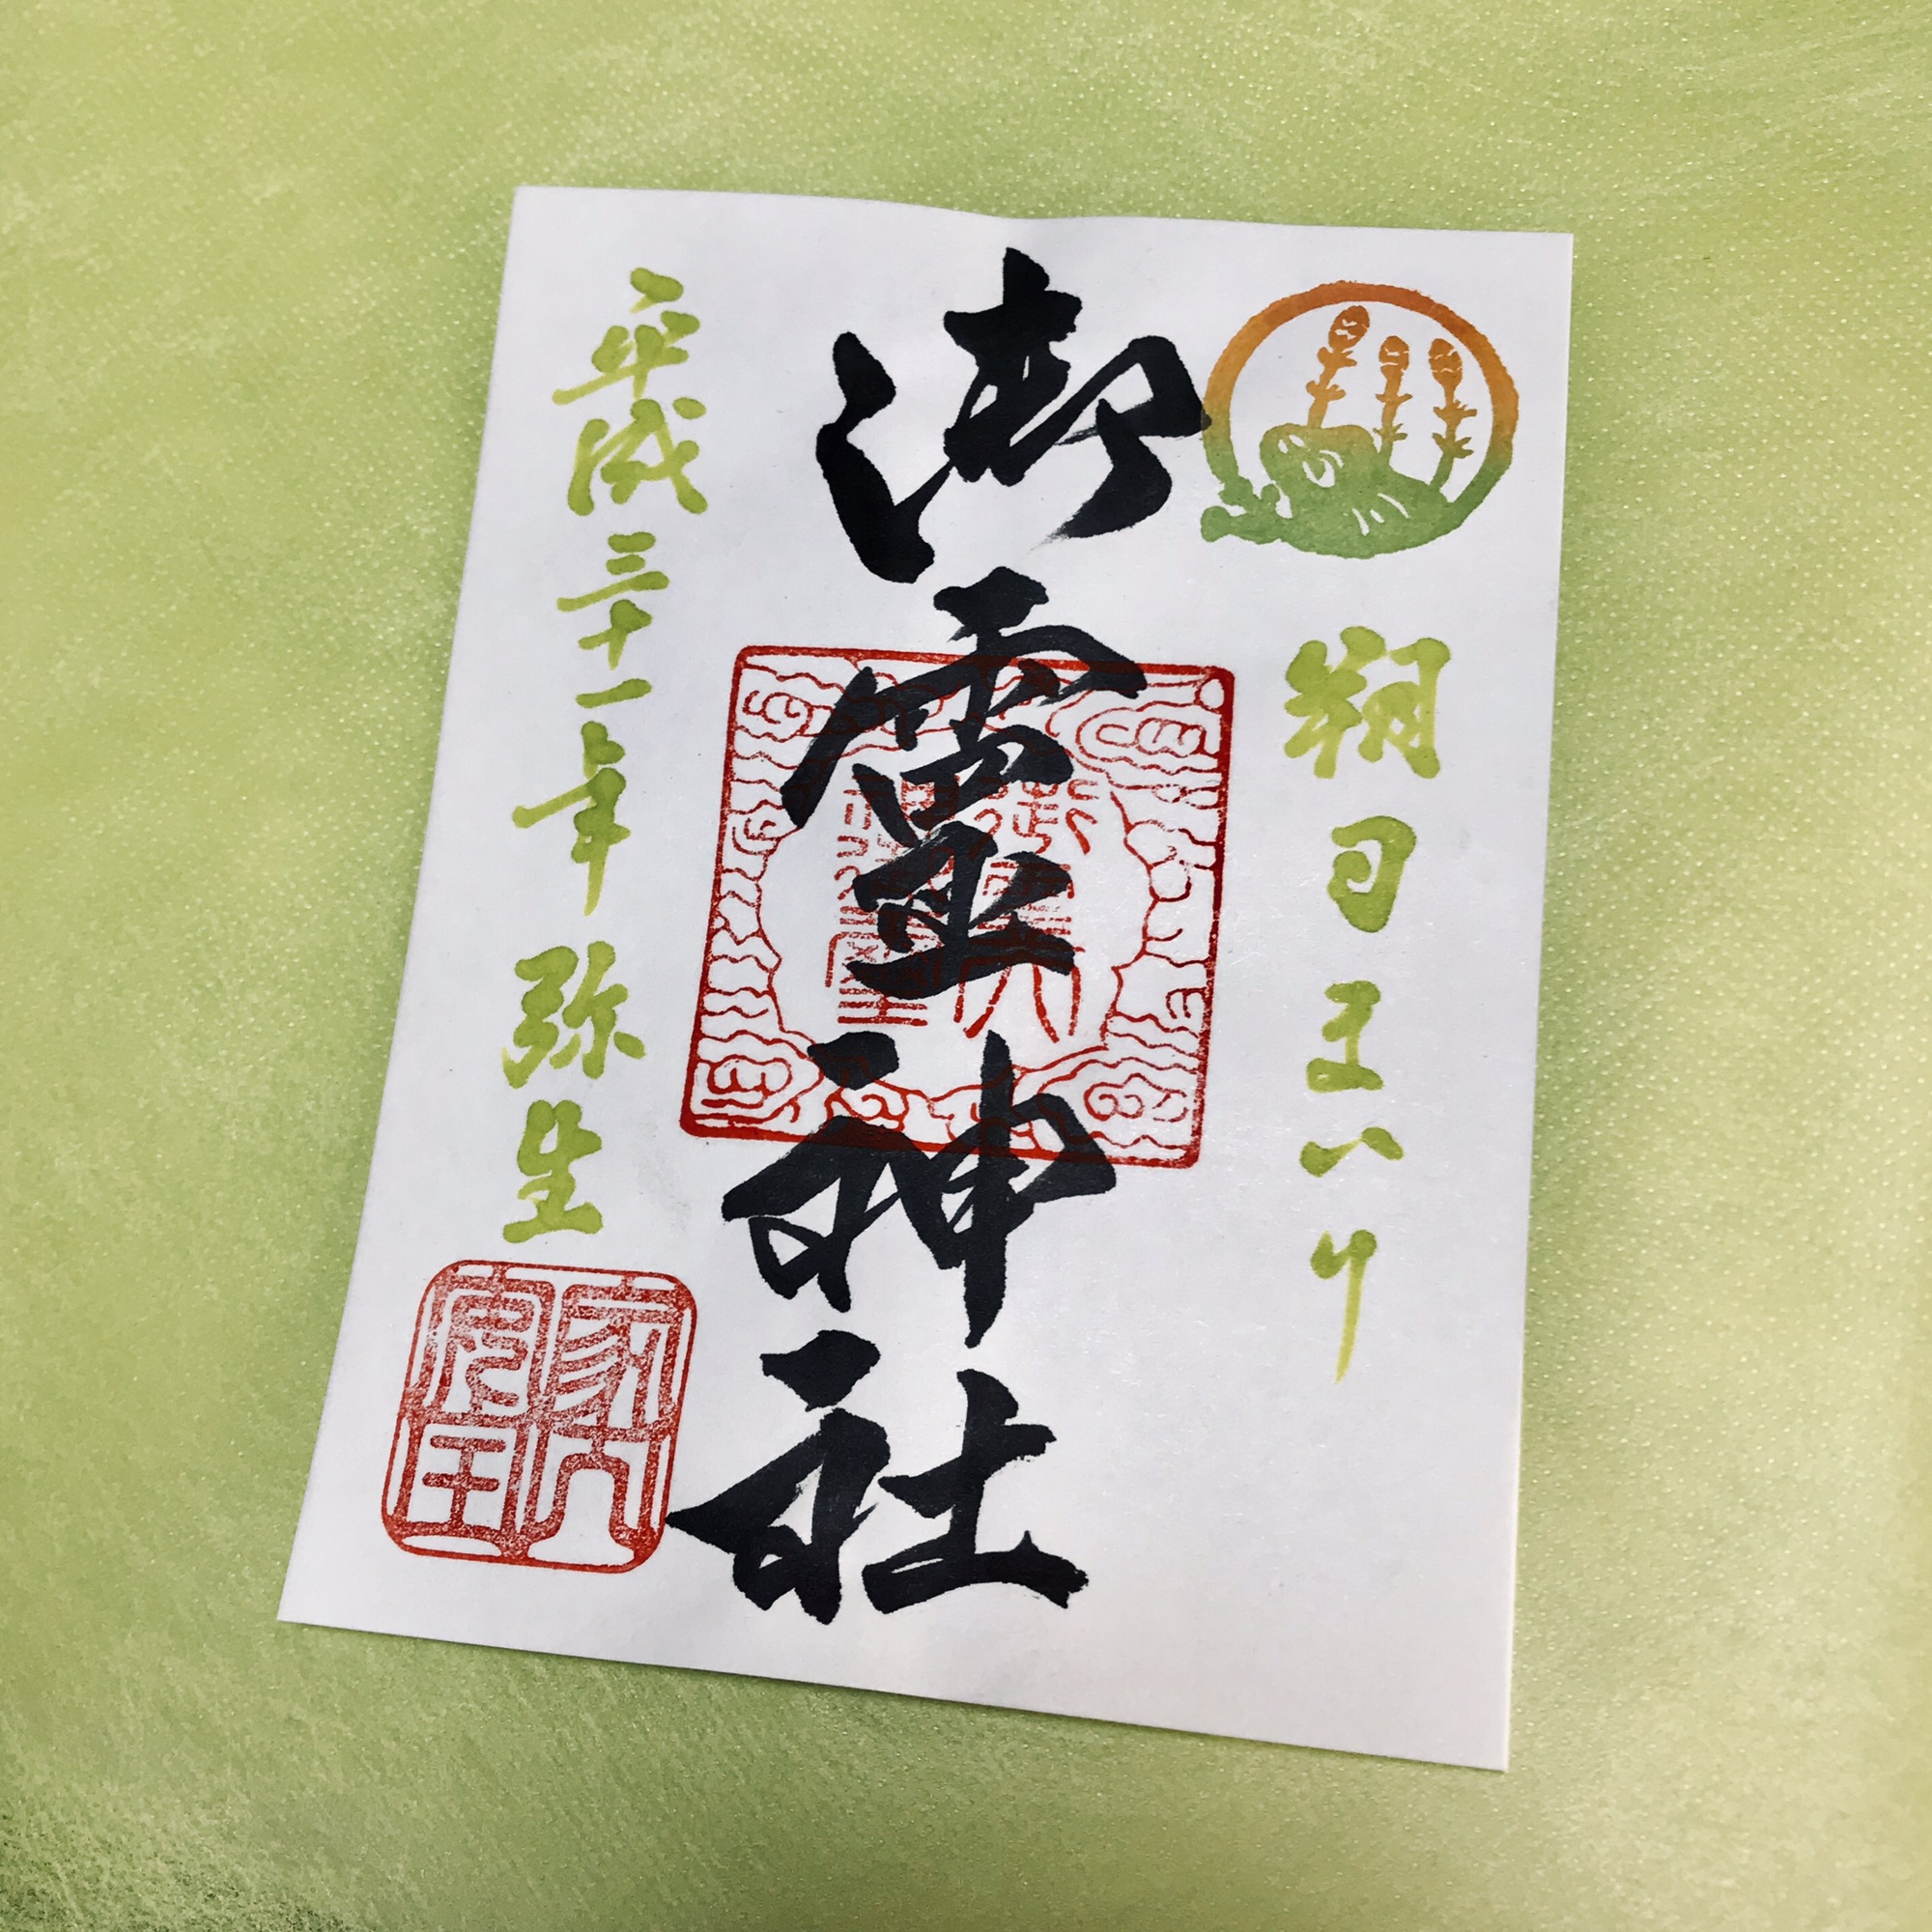 朔日まいり
御霊神社
平成三十一年 弥生